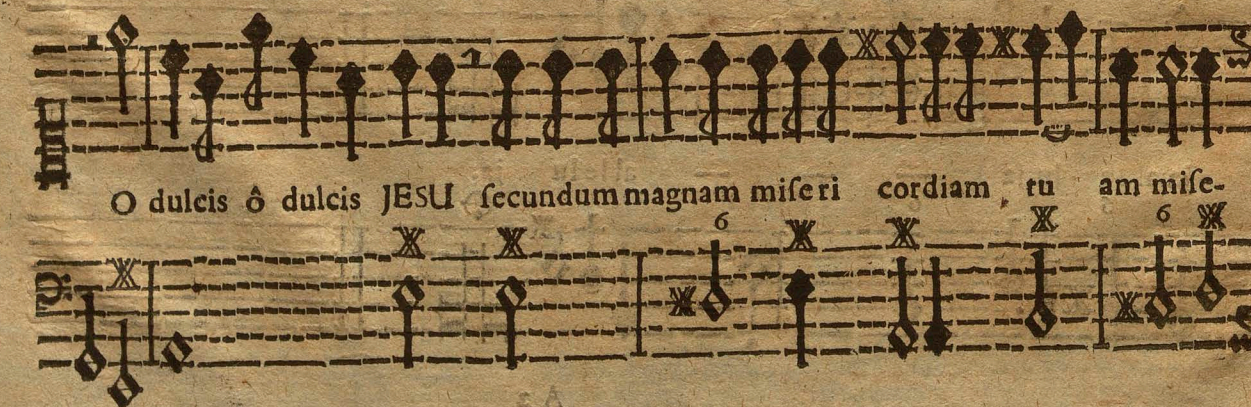 O dulcis ô dulcis JESU ſecundum magnam miſe ri cordiam tu am miſe-
6 6